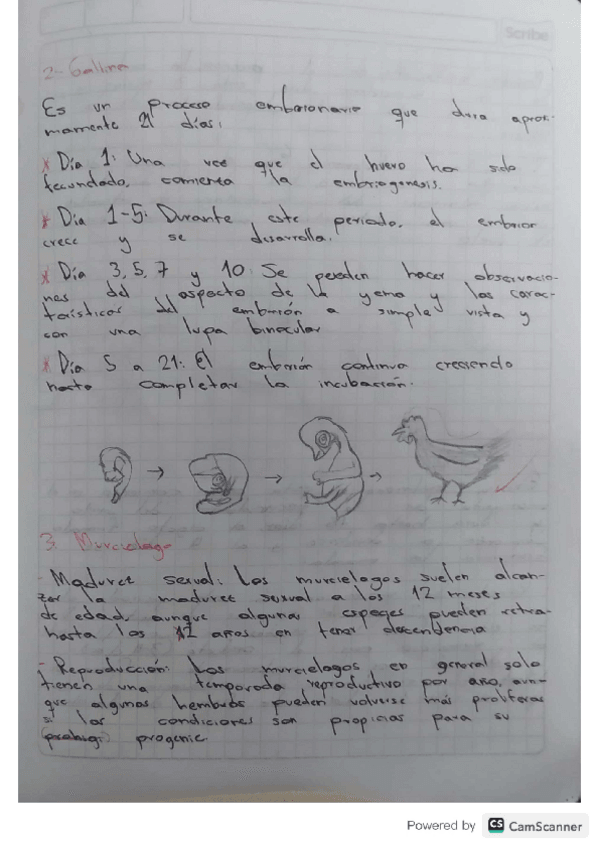 Scribe
2- Gallina
Es un proceso embrionario que dura aproxi-
mamente 21 días.
* Día 1: Una vez que el huevo ha sido
fecundado, comienza la embriogenesis.
* Día 1-5: Durante este periodo, el embrion
crece y se desarrolla.
* Día 3, 5, 7 y 10: Se pueden hacer observacio-
nes del aspecto de la yema y las carac-
terísticas del embrión a simple vista y
con una lupa binocular
* Día 5 a 21: El embrión continua creciendo
hasta completar la incubación.
3. Murcielago
- Madurez sexual: Los murcielagos suelen alcan-
zar la madurez sexual a los 12 meses
de edad, aunque algunas especies pueden
hasta los 12 años en tener decendencia
- Reproducción: Los murcielagos en general solo
tienen una temporada reproductivo por año, aun-
que algunas hembras pueden volverse más proliferas
si las condiciones son propicias para su
progenie.
Powered by CS CamScanner